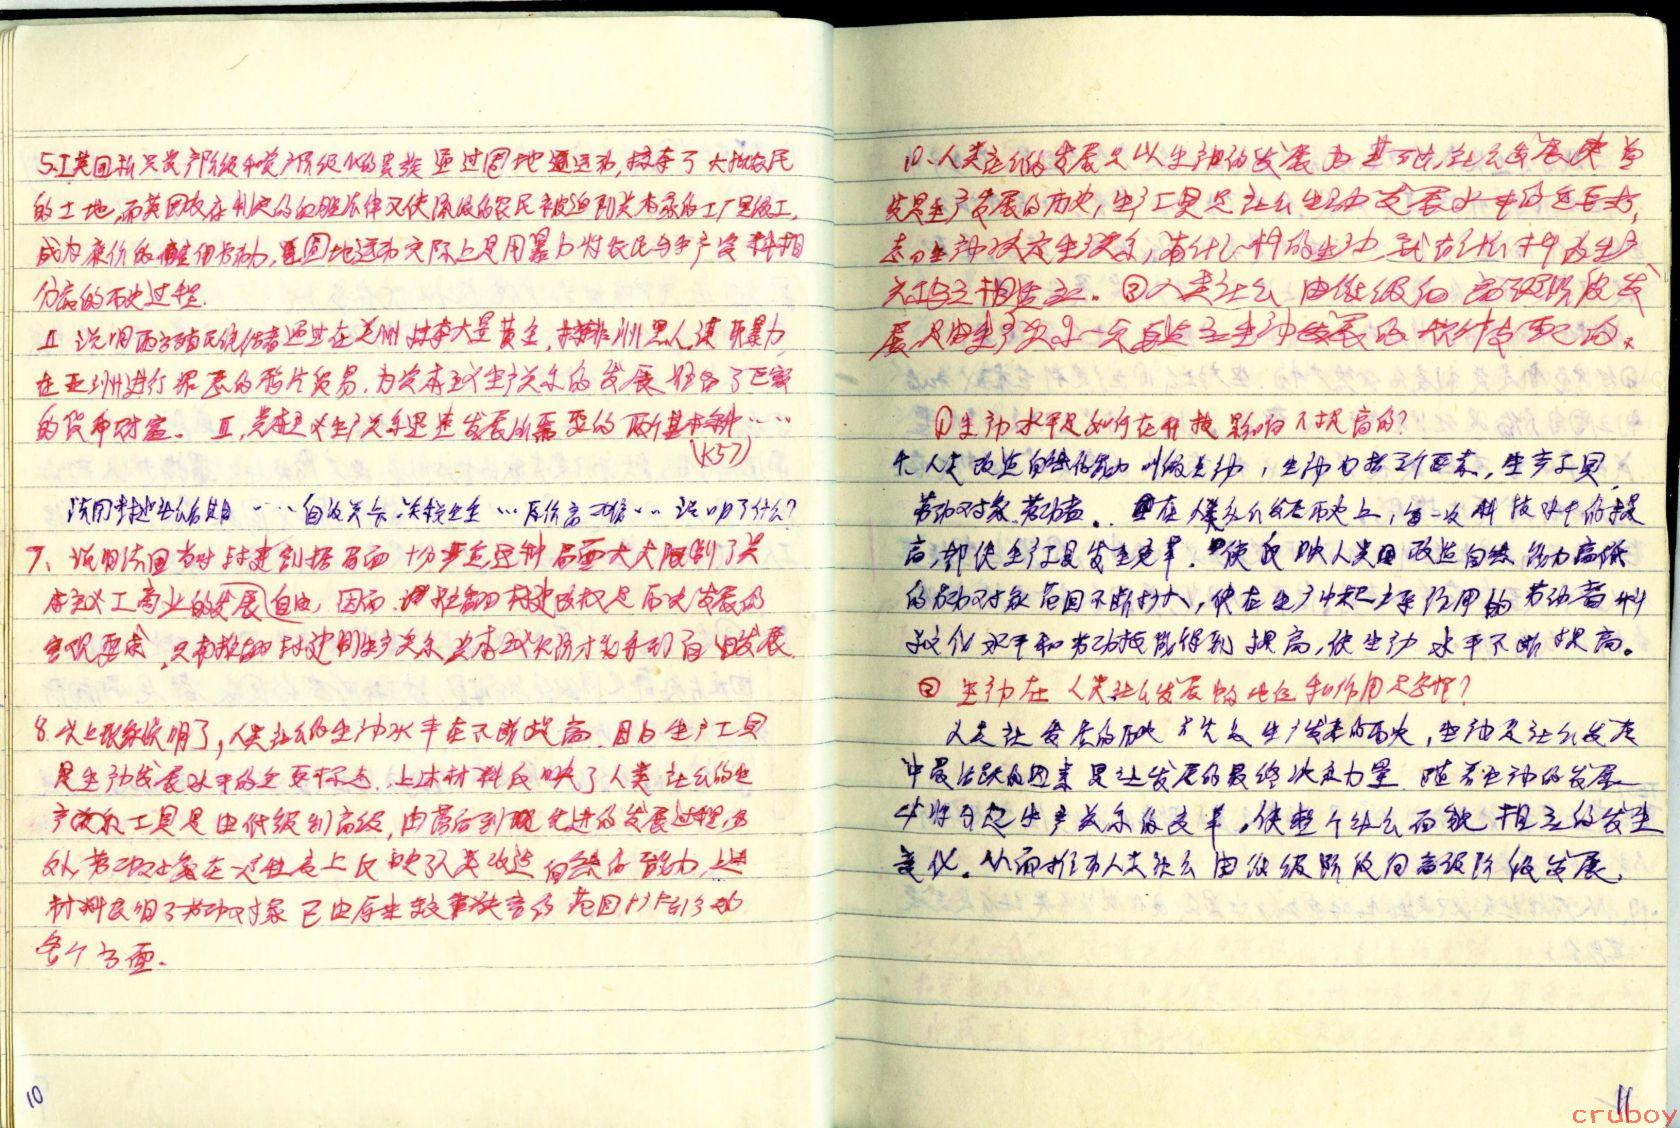 5.I英国新兴资产阶级和资产阶级化的贵族通过圈地运动,掠夺了大批农民
的土地,而英国政府制定的血腥法律又使流浪的农民被迫到资本家的工厂里做工,
成为廉价的雇佣劳动力,圈地运动实际上是用暴力将农民与生产资料相
分离的历史过程.
II 说明西方殖民侵略者通过在美洲掠夺大量黄金,非洲黑人,谋取暴力
在亚洲进行罪恶的鸦片贸易.为资本主义生产关系的发展 积合了巨额
的货币财富. II,资本主义生产关系迅速发展所需要的两个基本条件……
(K57)
法国 …… 自设关卡 关税 … 原价高 … 说明了什么?
7、说明法国当时封建割据局面十分严重,这种局面大大限制了资
本主义工商业的发展自由,因而 推翻封建政权是历史发展的
客观要求,只有推翻封建的生产关系,资本主义经济才能得到自由发展.
8.以上现象说明了,人类社会的生产力水平在不断提高.因为生产工具
是生产力发展水平的主要标志.上述材料反映了人类社会的生
产工具是由低级到高级,由落后到先进的发展过程,另
外,劳动对象在一定程度上反映了人类改造自然的能力,上述
材料表明了劳动对象已由原来 的范围扩大到了
各个方面.
10
10.人类社会的发展是以生产力的发展为基础,社会发展史首
先是生产发展的历史,生产工具是社会生产力发展水平的主要标
志.①生产力决定生产关系,有什么样的生产力就有什么样的生产
关系与之相适应.②人类社会由低级向高级阶段发
展,是由生产关系一定要适应生产力发展的规律支配的.
①生产力水平是如何在科技影响下提高的?
人类改造自然的能力叫做生产力,生产力包括三个要素,生产工具
劳动对象,劳动者.. 在人类社会历史上,每一次科技水平的提
高,都使生产工具发生变革.使反映人类改造自然能力高低
的劳动对象范围不断扩大,使在生产中起主导作用的劳动者科
学文化水平和劳动技能得到提高,使生产力水平不断提高.
②生产力在人类社会发展的地位和作用是怎样?
人类社会发展的历史首先是生产发展的历史,生产力是社会发展
中最活跃的因素是社会发展的最终决定力量.随着生产力的发展
必将引起生产关系的变革,使整个社会面貌相应的发生
变化.从而推动人类社会由低级阶段向高级阶段发展.
11
cruboy